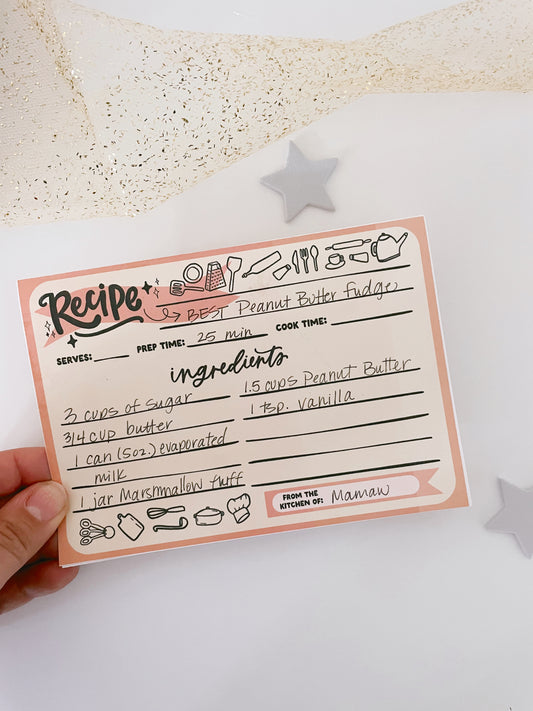 Recipe
BEST Peanut Butter fudge
SERVES: PREP TIME: 25 min COOK TIME:
ingredients
3 cups of sugar
3/4 cup butter
1 can (5oz.) evaporated
milk
1 jar Marshmallow fluff
1.5 cups Peanut Butter
1 tsp. vanilla
FROM THE
KITCHEN OF: Mamaw